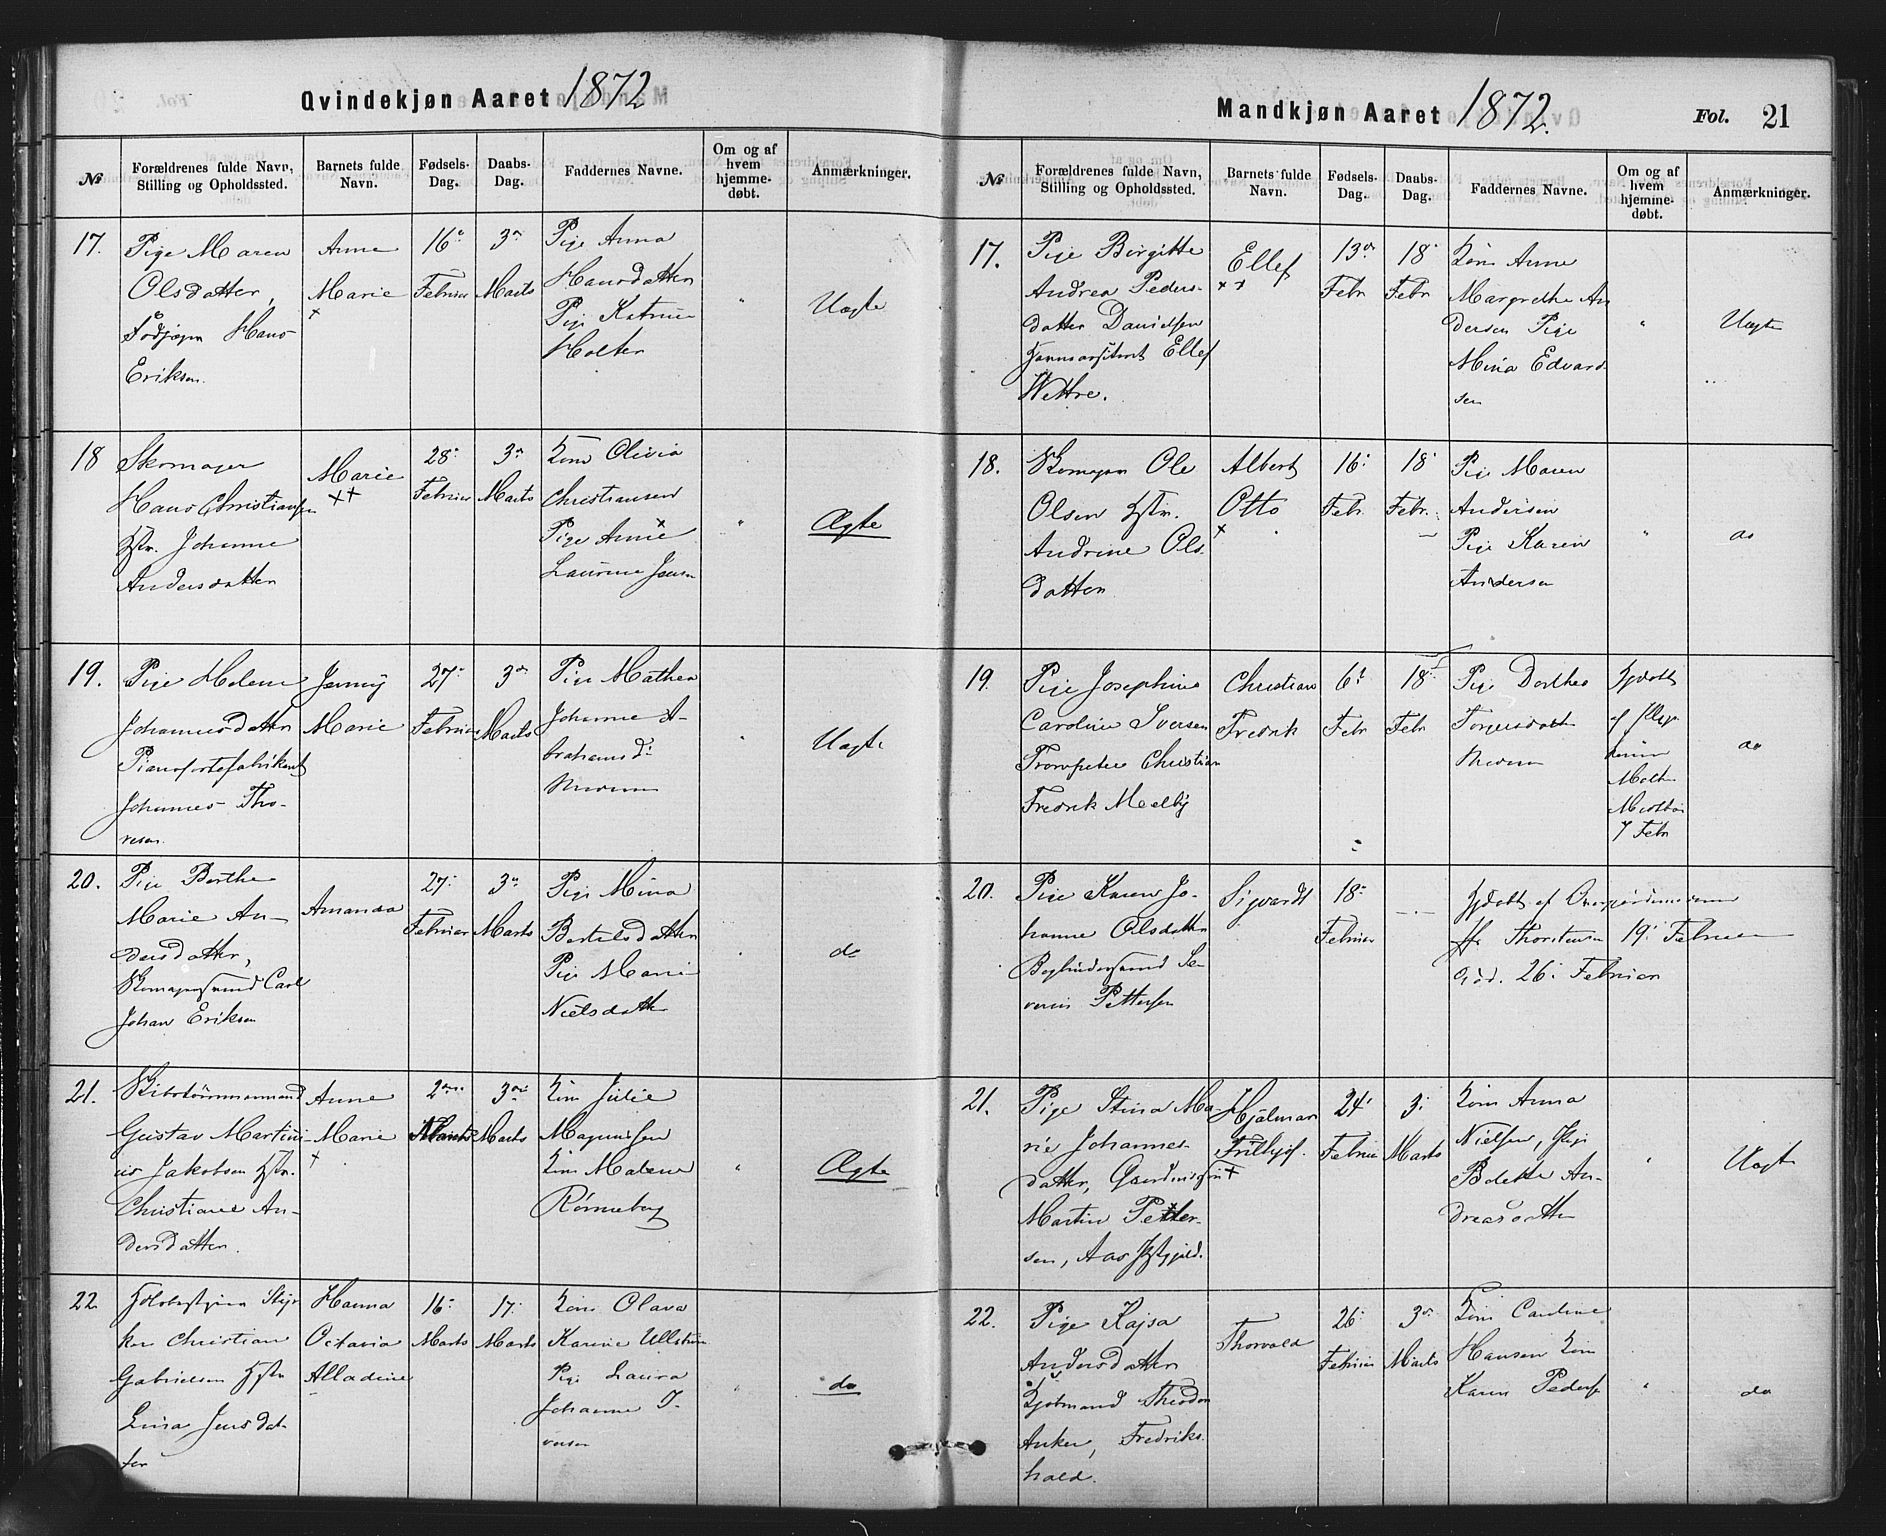 Qvindekjøn Aaret 1872
№
Forældrenes fulde Navn, Stilling og Opholdssted.
Barnets fulde Navn.
Fødsels-Dag.
Daabs-Dag.
Faddernes Navne.
Om og af hvem hjemme-døbt.
Anmærkninger.
17.
Pige Maren
Olsdatter,
Hans
Eriksen.
Anne
Marie
×
16
Februar
3
Marts
Pige Anna
Hansdatter
Pige Katrine
Holter
"
Uægte
18
Skomager
Hans Christiansen
Hstr. Johanne
Andersdatter
Marie
××
28
Februar
3
Marts
Kone Olivia
Christiansen
Pige Anne
Laurine Jensen
"
Ægte
19.
Pige Helene
Johannesdatter
Pianofortefabrikant
Johannes Tho-
resen.
Jenny
Marie
27
Februar
3
Marts
Pige Mathea
Johanne A-
brahamsd:
"
Uægte
20.
Pige Berthe
Marie An-
dersdatter,
Skomagersvend Carl
Johan Eriksen
Amanda
27
Februar
3
Marts
Pige Mina
Bertelsdatter
Pige Marie
Nielsdatter
do
21.
Skibstømmermand
Gustav Martini-
us Jakobsen Hstr.
Christiane An-
dersdatter.
Anne
Marie
×
2
Marts
3
Marts
Kone Julie
Magnussen
Kone Malene
Rønneberg
"
Ægte
22.
Christian
Gabrielsen Hstr
Lina Jensdat-
ter
Hanna
Octavia
Alladine
16
Marts
17
Marts
Kone Olava
Karine Ullstrøm
Pige Laura
Johanne I-
versen
"
do
Mandkjøn Aaret 1872.
Fol. 21
№
Forældrenes fulde Navn, Stilling og Opholdssted.
Barnets fulde Navn.
Fødsels-Dag.
Daabs-Dag.
Faddernes Navne.
Om og af hvem hjemme-døbt.
Anmærkninger.
17.
Pige Birgitte
Andrea Peders-
datter Danielsen
Ellef
Wettre.
Ellef
××
13
Febr
18
Febr
Kone Anne
Margrethe An
dersen Pige
Mina Edvard
sen
"
Uægte
18.
Skomager Ole
Olsen Hstr.
Andrine Ols
datter
Albert
Otto
×
16
Febr
18
Febr.
Pige Maren
Andersen
Pige Karen
Andersen
"
do
19.
Pige Josephine
Caroline Iversen
Trompeter Christian
Fredrik Melby
Christian
Fredrik
6
Febr
18
Febr
Pige Dorthea
Torgersdatt
Hjdøbt
af
7 Febr
do
20.
Pige Karen Jo-
hanne Olsdatter
Bogbindersvend Se-
verin Pettersen
Sigvardt
18
Februar
Hjdøbt af
Thorstensen 19 Februar
Død. 26 Februar
21.
Pige Stina Ma-
rie Johannes
datter,
Martin Petter-
sen, Aas Prgjeld.
Hjalmar
Frithjof.
×
24
Februar
3
Marts
Kone Anna
Nielsen, Pige
Bolette An-
dreasdatter
"
Uægt
22.
Pige Kajsa
Andersdatter
Kjøbmand Theodor
Anker, Fredriks
hald.
Thorvald
26
Februar
3
Marts
Kone Caroline
Hansen Kone
Karen Peders
"
do